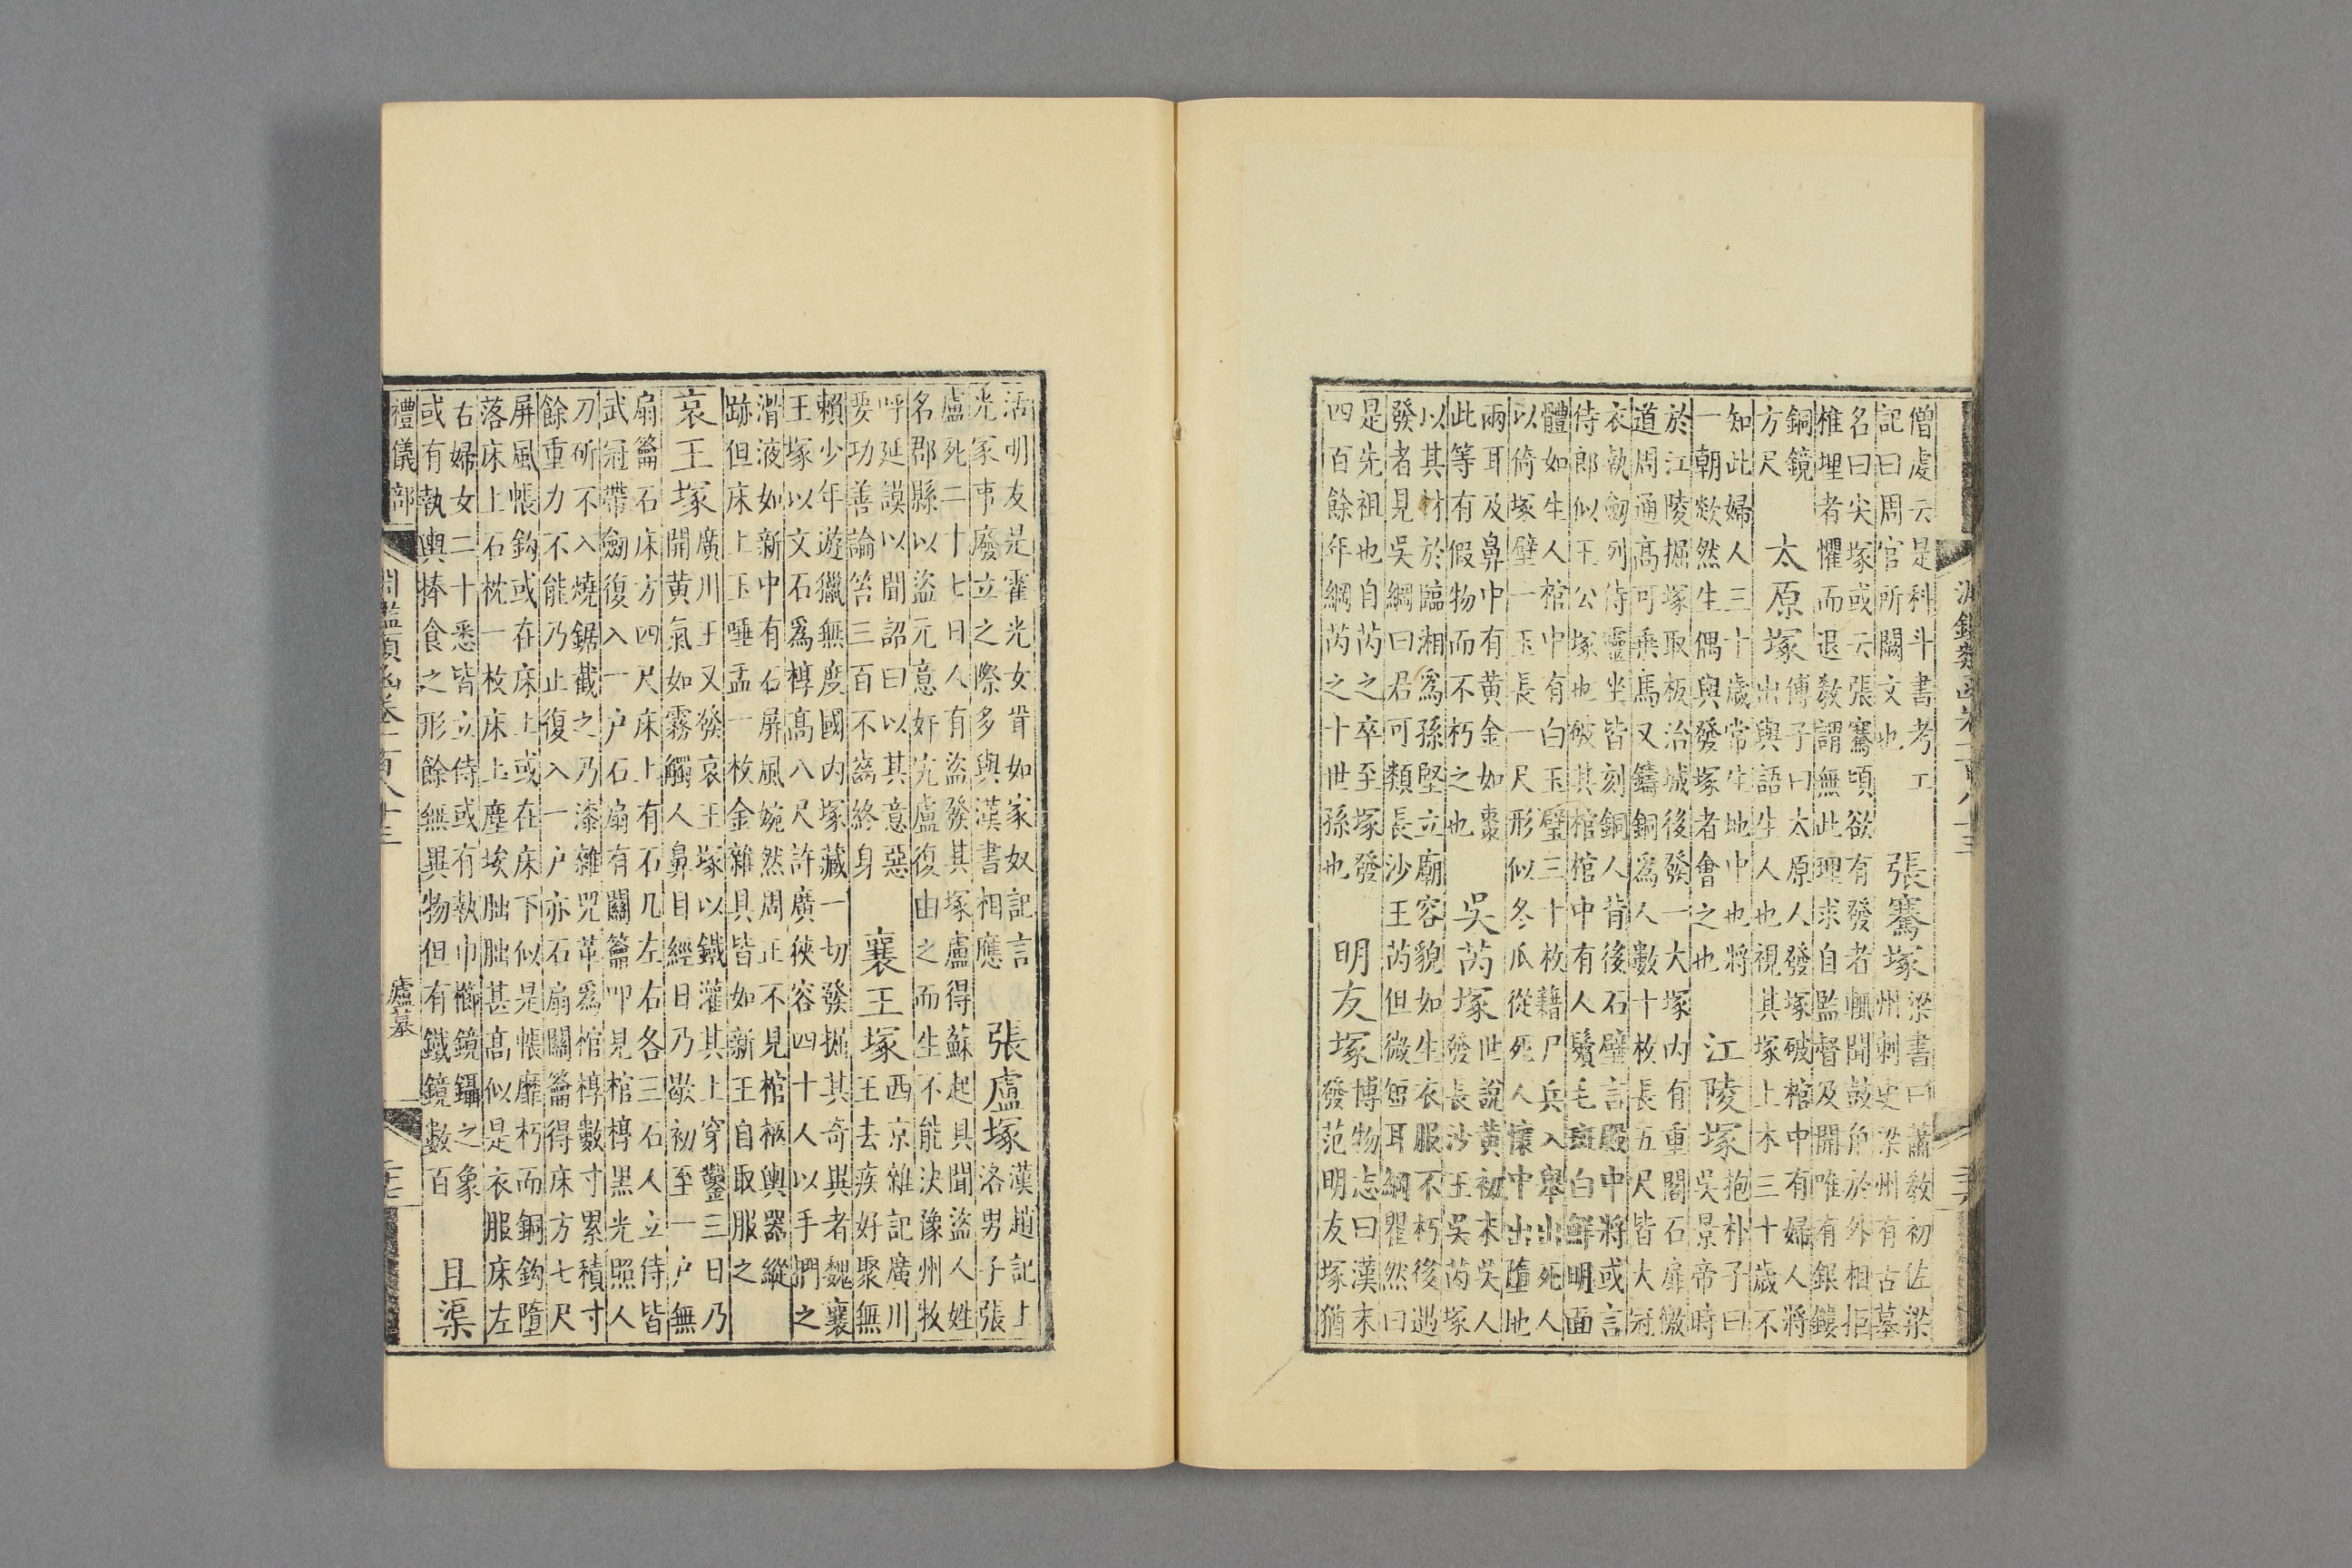 淵鑑類函卷一百八十三
僧虔云是科斗書考工
記曰周官所闕文也
張騫塚
梁書曰蕭敎初佐梁
州刺史梁州有古墓
名曰尖塚或云張騫墳欲有發者輒聞鼓角於外相拒
椎埋者懼而退敎謂無此理求自監督及開唯有銀鏤
銅鏡
方尺
太原塚
傅子曰太原人發塚破棺中有婦人將
出與語生人也視其塚上木三十歲不
知此婦人三十歲常生地中也將
一朝欻然生偶與發塚者會之也
江陵塚
抱朴子曰
吳景帝時
於江陵掘塚取板治城後發一大塚内有重閣石扉徼
道周通高可乗馬又鑄銅爲人數十枚長五尺皆大冠
衣執劒列侍靈坐皆刻銅人背後石壁言殿中將或言
侍郎似王公塚也破其棺棺中有人鬚毛斑白鮮明面
體如生人棺中有白玉璧三十枚藉尸兵人舉出死人
以倚塚壁一玉長一尺形似冬瓜從死人懷中出墮地
兩耳及鼻中有黄金如棗
此等有假物而不朽之也
吳芮塚
世說黄初末吳人
發長沙王吳芮塚
以其材於臨湘爲孫堅立廟容貌如生衣服不朽後遇
發者見吳綱曰君可類長沙王芮但微短耳綱瞿然曰
是先祖也自芮之卒至塚發
四百餘年綱芮之十世孫也
明友塚
博物志曰漢末
發范明友塚猶
活明友是霍光女胥如家奴記言
光家事廢立之際多與漢書相應
張盧塚
漢趙記上
洛男子張
盧死二十七日人有盜發其塚盧得蘇起具聞盜人姓
名郡縣以盜元意奸宄盧復由之而生不能決豫州牧
呼延謨以聞詔曰以其意惡
要功善論笞三百不齒終身
襄王塚
西京雜記廣川
王去疾好聚無
賴少年遊獵無度國内塚藏一切發掘其奇異者魏襄
王塚以文石爲椁高八尺許廣狹容四十人以手捫之
滑液如新中有石屏風婉然周正不見棺柩輿器縱
跡但床上玉唾盂一枚金雜具皆如新王自取服之
哀王塚
廣川王又發哀王塚以鐵灌其上穿鑿三日乃
開黄氣如霧觸人鼻目經日乃歇初至一户無
扇籥石床方四尺床上有石几左右各三石人立侍皆
武冠帶劒復入一户石扇有關籥叩見棺椁黑光照人
刀斫不入燒鋸截之乃漆雜兕革爲棺椁數寸累積寸
餘重力不能乃止復入一户亦石扇關籥得床方七尺
屏風帳鈎或在床上或在床下似是帳靡朽而銅鈎墮
落床上石枕一枚床上塵埃朏朏甚高似是衣服床左
右婦女二十悉皆立侍或有執巾櫛鏡鑷之象
或有執輿捧食之形餘無異物但有鐵鏡數百
且渠
禮儀部
淵鑑類函卷一百八十三
廬墓